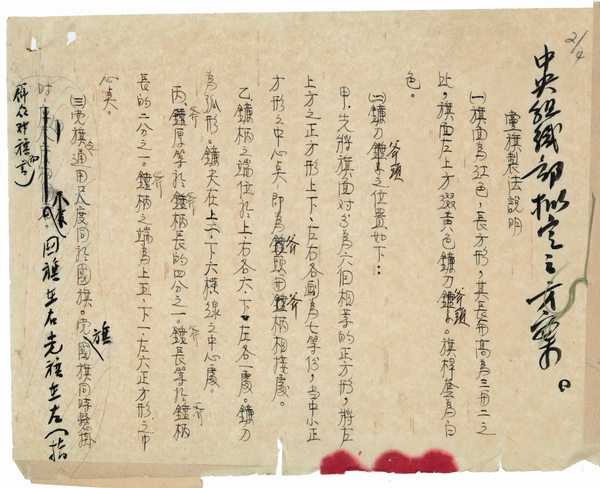 2/4
中央組織部拟定之方案。
黨旗製法說明
㈠旗面為红色，長方形，其長與高為三與二之
比，旗面左上方綴黃色鐮刀斧頭。旗桿套為白
色。
㈡鐮刀斧頭之位置如下：
甲、先將旗面对分為六個相等的正方形，將左
上方之正方形上下、左右各劃為七等份，当中小正
方形之中心点，即為斧頭與斧柄相接處。
乙、鐮柄之端位於上、右各六、下、左各一處。鐮刀
為弧形。鐮尖在上二、下六橫線之中心處。
丙、斧厚等於斧柄長的四分之一。斧長等於斧柄
長的二分之一。斧柄之端為上五、下一、左六正方形之中
心点。
㈢党旗通用尺度同於國旗。党旗國旗同時悬掛
时，國旗在右党旗在左（指
群众对旗而言）